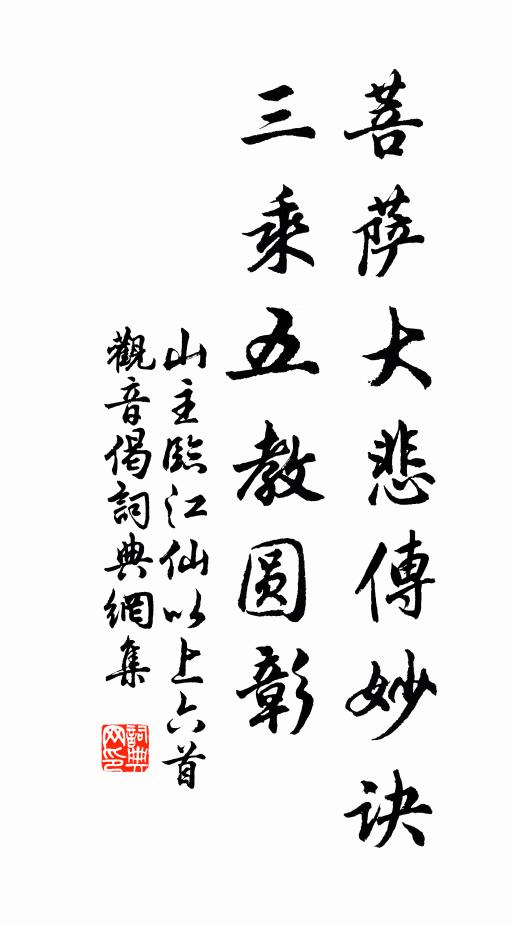 菩萨大悲傳妙诀
三乘五教圆彰
山主臨江仙以上六首
觀音偈詞典網集
詞典网印